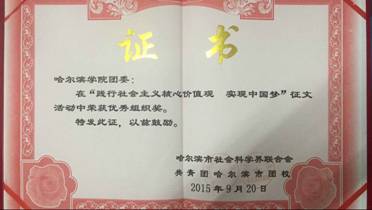 证 书
哈尔滨学院团委：
在“践行社会主义核心价值观 实现中国梦”征文
活动中荣获优秀组织奖。
特发此证，以兹鼓励。
哈尔滨市社会科学界联合会
共青团哈尔滨市团校
2015年9月20日